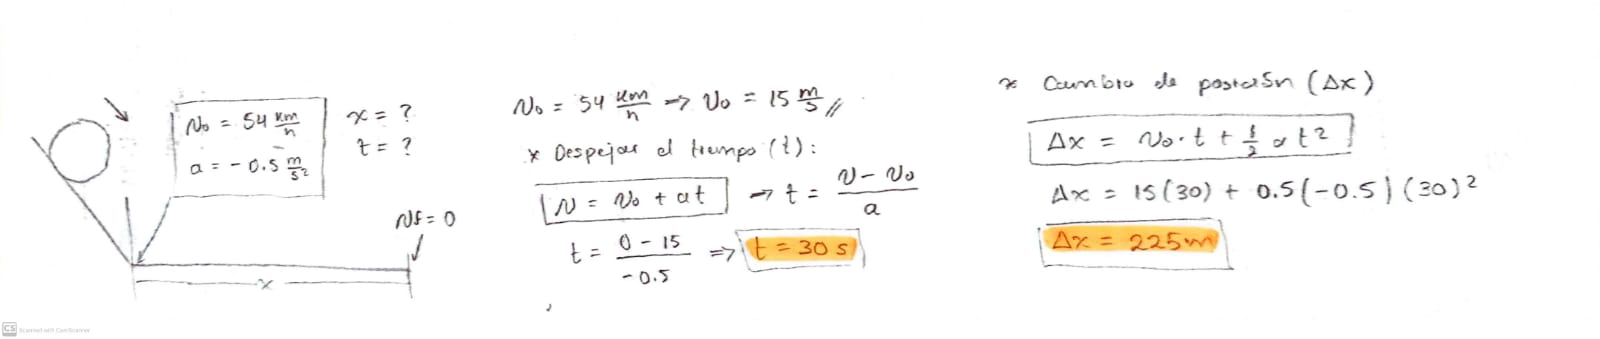 v₀ = 54 km/h
a = -0.5 m/s²
x = ?
t = ?
Nf = 0
x
v₀ = 54 km/h → v₀ = 15 m/s //
* Despejar el tiempo (t):
v = v₀ + at → t = (v - v₀)/a
t = (0 - 15)/(-0.5) ⇒ t = 30 s
* Cambio de posición (Δx)
Δx = v₀·t + 1/2 a t²
Δx = 15(30) + 0.5(-0.5)(30)²
Δx = 225m
CS Scanned with CamScanner